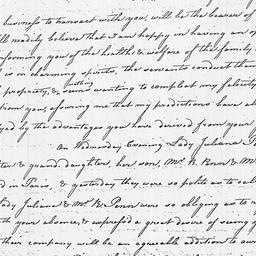 business to transact with you, will be the bearer of
ll readily believe that I am happy in having an op
nforming you of the health & welfare of the family
is in charming spirits, the servants conduct them
propriety, & nothing seems wanting to complete my felicity
from you, assuring me that my predictions have al
yed by the advantages you have derived from your
On Wednesday Evening Lady Juliana P
ter & grand daughter, her son, Mr. R. Penn & M
d in Paris, & yesterday they were so polite as to cal
Lady Juliana & Mr. R. Penn were so obliging as to
th your absence, & express'd a great desire of seeing y
their company will be an agreeable addition to our